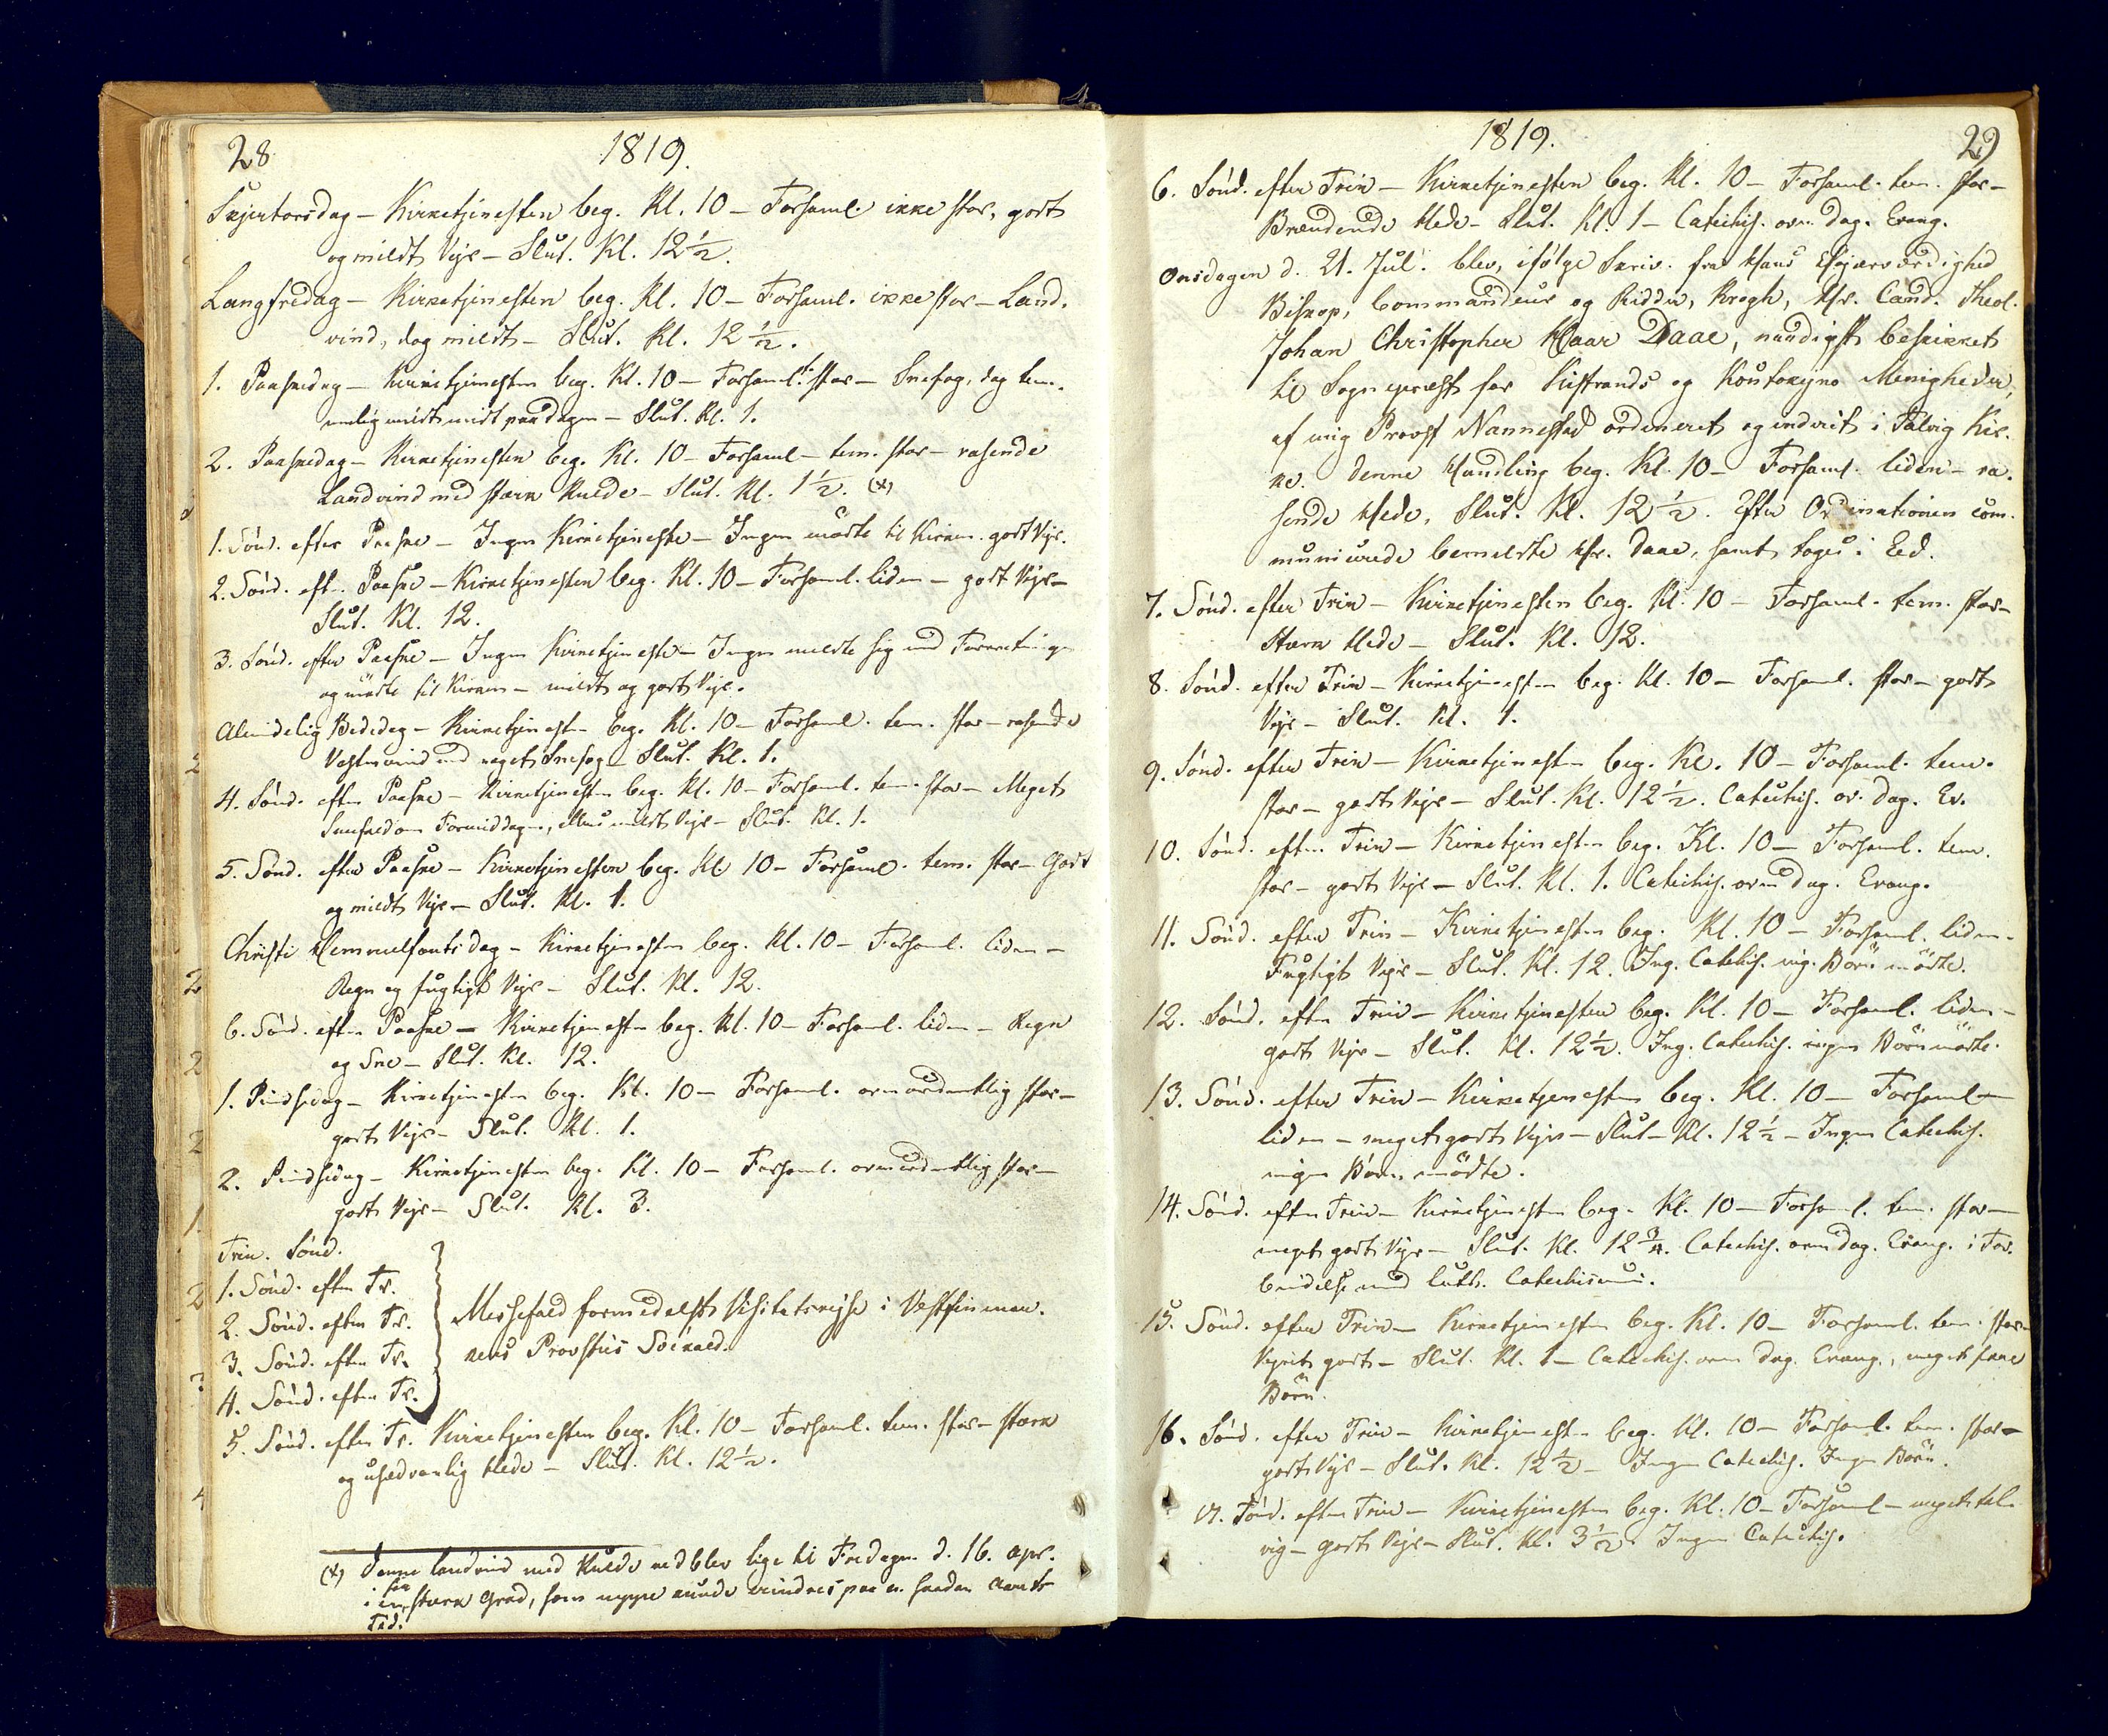 28 1819.
Skjertorsdag – Kirketjenesten beg. Kl. 10 – Forsaml. ikke stor, godt
og mildt Vejr – Slut. Kl. 12½.
Langfredag – Kirketjenesten beg. Kl. 10 – Forsaml. ikke stor – Land-
vind, dog mildt – Slut. Kl. 12½.
1. Paaskedag – Kirketjenesten beg. Kl. 10 – Forsaml. stor – Snefog, dog tem-
melig mildt midt paa dagen – Slut. Kl. 1.
2. Paaskedag – Kirketjenesten beg. Kl. 10 – Forsaml – tem. stor – rasende
Landvind med stærk Kulde – Slut. Kl. 1½. (x)
1. Sönd. efter Paaske – Ingen Kirketjeneste – Ingen mödte til Kirken. godt Vejr.
2. Sönd. eft. Paaske – Kirketjenesten beg. Kl. 10 – Forsaml. liden – godt Vejr –
Slut. Kl. 12.
3. Sönd. efter Paaske – Ingen Kirketjeneste – Ingen meldte sig med Forretninger
og mödte til Kirken – mildt og godt Vejr.
Almindelig Bededag – Kirketjenesten beg. Kl. 10 – Forsaml. tem. stor – rasende
Vestenvind med noget Snefog – Slut. Kl. 1.
4. Sönd. efter Paaske – Kirketjenesten beg. Kl. 10 – Forsaml. tem. stor – Meget
Sneefald om Formiddagen, ellers mildt Vejr – Slut. Kl. 1.
5. Sönd. efter Paaske – Kirketjenesten beg. Kl. 10 – Forsaml. tem. stor – Godt
og mildt Vejr – Slut. Kl. 1.
Christi Hemmelfartsdag – Kirketjenesten beg. Kl. 10 – Forsaml. liden –
Regn og fugtigt Vejr – Slut. Kl. 12.
6. Sönd. efter Paaske – Kirketjenesten beg. Kl. 10 – Forsaml. liden – Regn
og Sne – Slut. Kl. 12.
1. Pindsedag – Kirketjenesten beg. Kl. 10 – Forsaml. overordentlig stor –
godt Vejr – Slut. Kl. 1.
2. Pindsedag – Kirketjenesten beg. Kl. 10 – Forsaml. overordentlig stor –
godt Vejr – Slut. Kl. 3.
Trin. Sönd.
1. Sönd. efter Tr.
2. Sönd. efter Tr.
3. Sönd. efter Tr.
4. Sönd. efter Tr.
Messefald formedelst Visitatsrejse i Vestfinmar-
kens Provstie
5. Sönd. efter Tr. Kirketjenesten beg. Kl. 10 – Forsaml. tem. stor – stærk
og usedvanlig Hede – Slut. Kl. 12½.
(x) Denne Landvind med Kulde vedblev lige til Fredagen d. 16. Apr.
i en saa stærk Grad, som neppe kunde mindes paa en saadan Aarets
Tid.
1819. 29
6. Sönd. efter Trin – Kirketjenesten beg. Kl. 10 – Forsaml. tem. stor –
Brændende Hede – Slut. Kl. 1 – Catechis. over Dag. Evang.
Onsdagen d. 21. Jul. blev, ifölge Skriv. fra Hans Höjærværdighed
Biskop, Commandeur og Ridder, Krogh, Hr. Cand. Theol.
Johan Christopher Haar Daae, naadigst beskikket
til Sognepræst for Kistrands og Koutokejno Menigheder,
af mig Provst Nannestad ordineret og indviet i Talvig Kir-
ke. Denne Handling beg. Kl. 10 – Forsaml. liden – ra-
sende Hede. Slut. Kl. 12½. Efter Ordinationen com-
municerede bemeldte Hr. Daae, samt toges i Eed.
7. Sönd. efter Trin – Kirketjenesten beg. Kl. 10 – Forsaml. tem. stor –
Stærk Hede – Slut. Kl. 12.
8. Sönd. efter Trin – Kirketjenesten beg. Kl. 10 – Forsaml. stor – godt
Vejr – Slut. Kl. 1.
9. Sönd. efter Trin – Kirketjenesten beg. Kl. 10 – Forsaml. tem.
stor – godt Vejr – Slut. Kl. 12½. Catechis. ov. Dag. Ev.
10. Sönd. efter Trin – Kirketjenesten beg. Kl. 10 – Forsaml. tem.
stor – godt Vejr – Slut. Kl. 1. Catechis. over Dag. Evang.
11. Sönd. efter Trin – Kirketjenesten beg. Kl. 10 – Forsaml. liden –
Fugtigt Vejr – Slut. Kl. 12. Ing. Catechis. ing. Börn mödte.
12. Sönd. efter Trin – Kirketjenesten beg. Kl. 10 – Forsaml. liden –
godt Vejr – Slut. Kl. 12½. Ing. Catechis. ingen Börn mödte.
13. Sönd. efter Trin – Kirketjenesten beg. Kl. 10 – Forsaml –
liden – meget godt Vejr – Slut – Kl. 12½ – Ingen Catechis.
ingen Börn mödte.
14. Sönd. efter Trin – Kirketjenesten beg. Kl. 10 – Forsaml. tem. stor –
meget godt Vejr – Slut. Kl. 12¾. Catechis. over Dag. Evang. i For-
bindelse med Luth. Catechismus.
15. Sönd. efter Trin – Kirketjenesten beg. Kl. 10 – Forsaml. tem. stor –
Vejret godt – Slut. Kl. 1 – Catechis. over Dag. Evang., meget faae
Börn.
16. Sönd. efter Trin – Kirketjenesten beg. Kl. 10 – Forsaml. tem. stor –
godt Vejr – Slut. Kl. 12½ – Ingen Catechis. Ingen Börn.
17. Sönd. efter Trin – Kirketjenesten beg. Kl. 10 – Forsaml – meget tal-
rig – godt Vejr – Slut. Kl. 3½. Ingen Catechis.